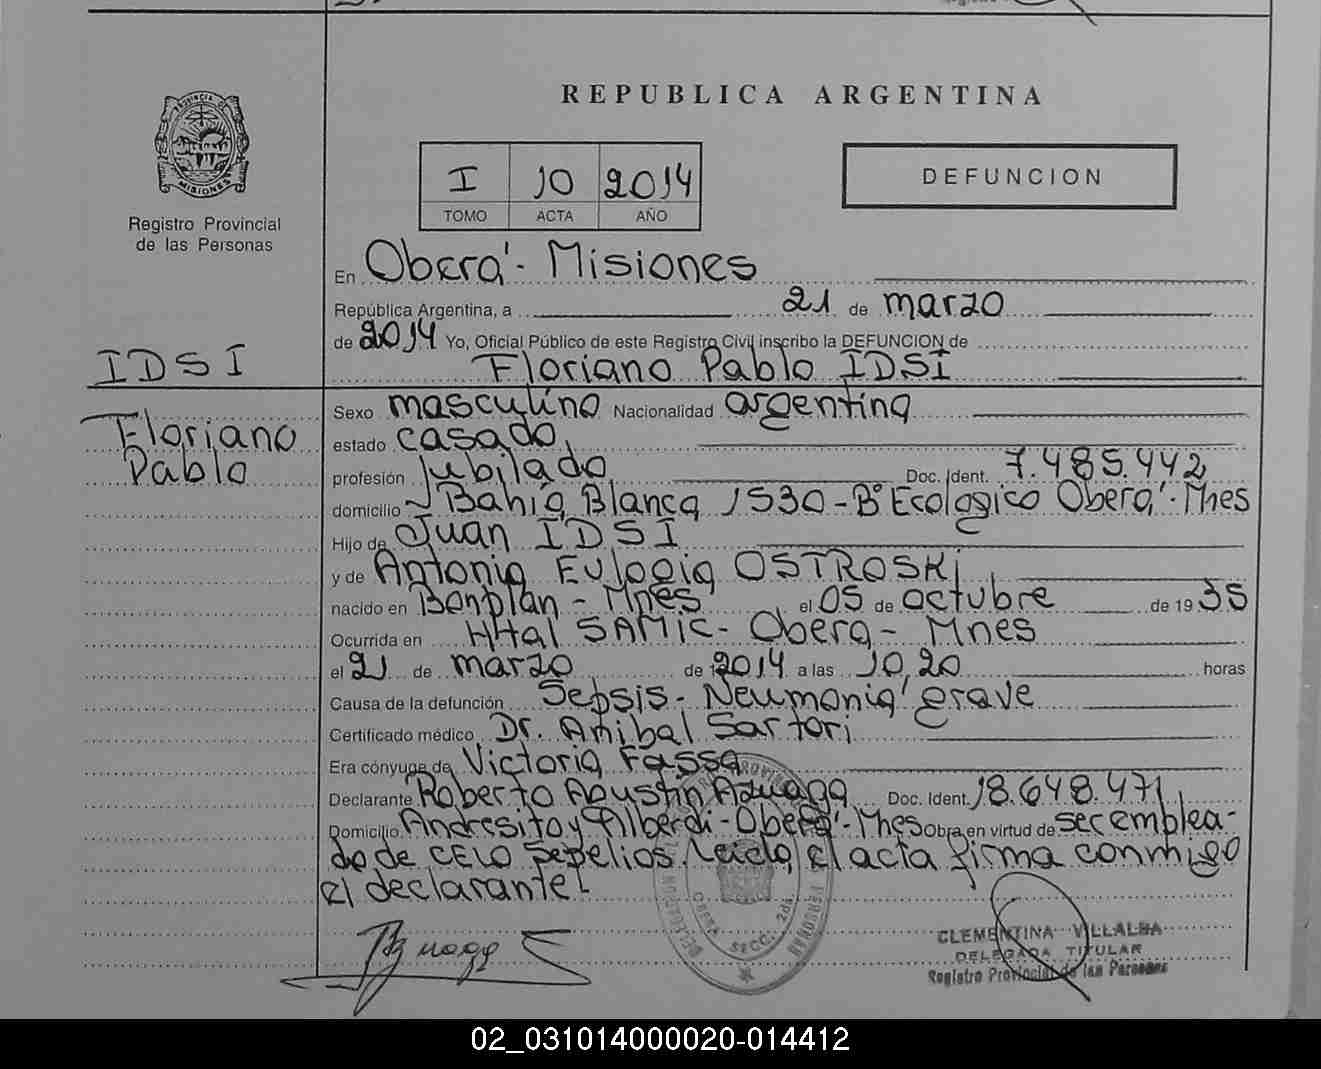 REPUBLICA ARGENTINA
PROVINCIA DE
MISIONES
Registro Provincial
de las Personas
I 10 2014
TOMO ACTA AÑO
DEFUNCION
En Oberá - Misiones
República Argentina, a 21 de marzo
de 2014 Yo, Oficial Público de este Registro Civil inscribo la DEFUNCION de
Floriano Pablo IDSI
IDSI
Floriano
Pablo
Sexo masculino Nacionalidad argentina
estado casado
profesión jubilado Doc. Ident. 7.485.442
domicilio Bahía Blanca 1530 - Bº Ecologico Oberá - Mnes
Hijo de Juan IDSI
y de Antonia Eulogia OSTROSKI
nacido en Bonplan - Mnes el 05 de octubre de 1935
Ocurrida en HHal SAMIC - Obera - Mnes
el 21 de marzo de 2014 a las 10,20 horas
Causa de la defunción Sepsis - Neumonia grave
Certificado médico Dr. Anibal Sartori
Era cónyuge de Victoria Fassa
Declarante Roberto Agustin Azuaga Doc. Ident. 18.648.471
Domicilio Andresito y Alberdi - Oberá - Mnes Obra en virtud de ser emplea-
do de CELO Sepelios. Leida el acta firma conmigo
el declarante.
OBERA SECC. 2da.
CLEMENTINA VILLALBA
DELEGADA TITULAR
Registro Provincial de las Personas
02_031014000020-014412